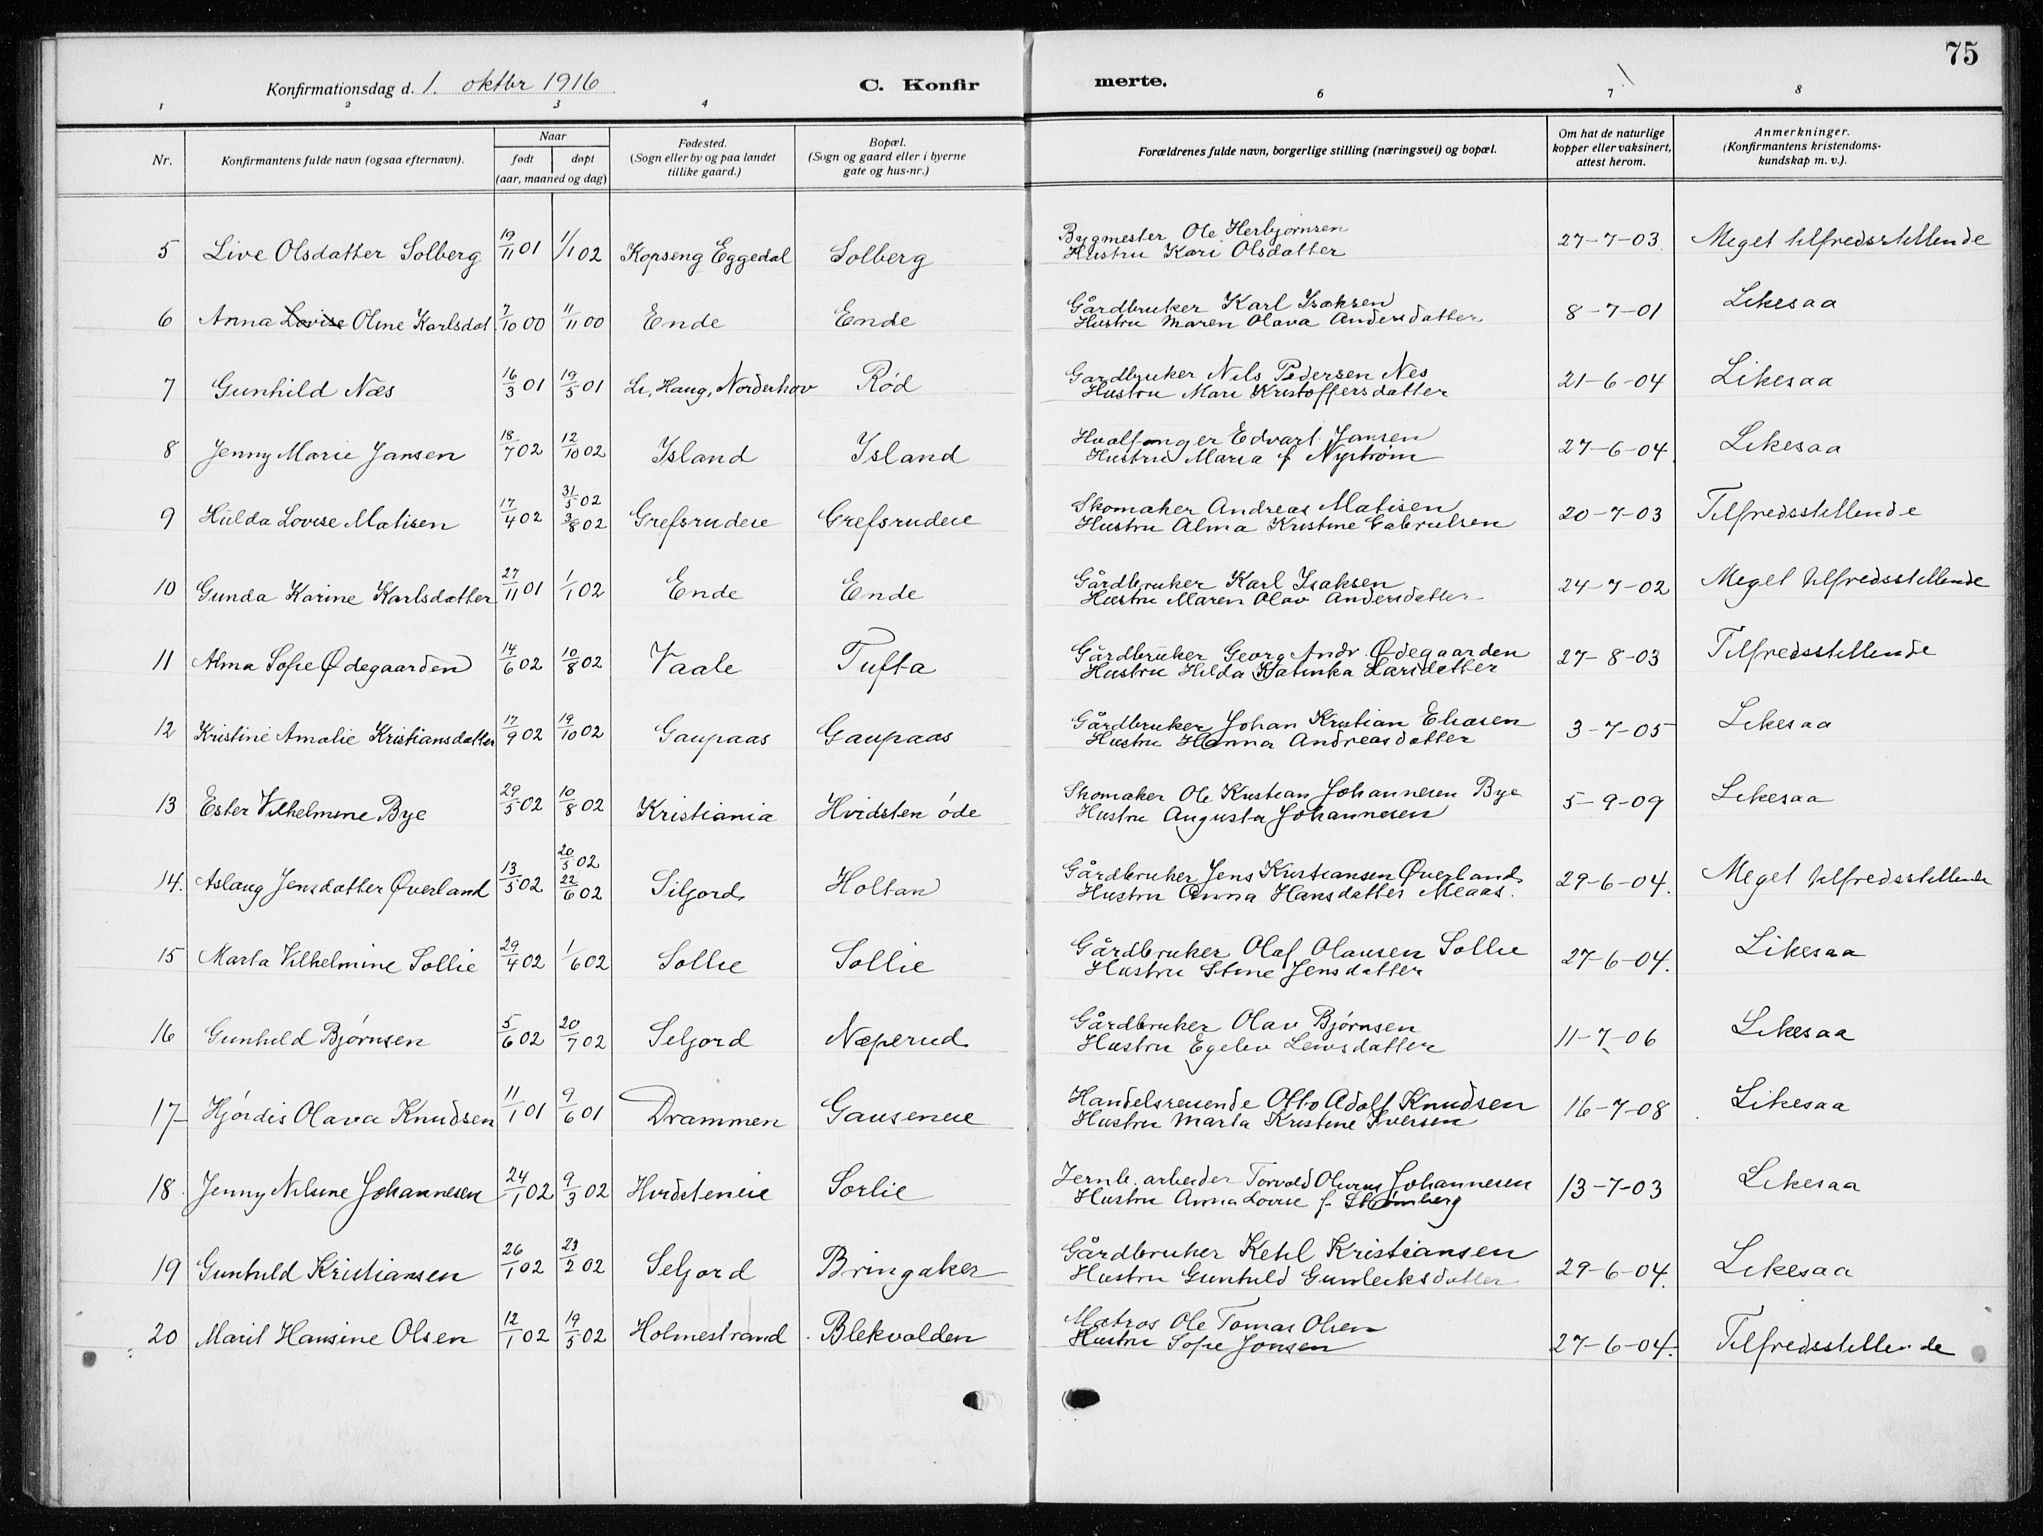 75
Konfirmationsdag d. 1. oktbr 1916
C. Konfir merte.
1 2 3 4 6 7 8
Nr.
Konfirmantens fulde navn (ogsaa efternavn).
Naar
født døpt
(aar, maaned og dag)
Fødested.
(Sogn eller by og paa landet
tillike gaard.)
Bopæl.
(Sogn og gaard eller i byerne
gate og hus-nr.)
Forældrenes fulde navn, borgerlige stilling (næringsvei) og bopæl.
Om hat de naturlige
kopper eller vaksinert,
attest herom.
Anmerkninger.
(Konfirmantens kristendoms-
kundskap m. v.).
5 Live Olsdatter Solberg 19/11 01 1/1 02 Kopseng Eggedal Solberg Bygmester Ole Herbjørnsen 27-7-03 Meget tilfredsstillende
Hustru Kari Olsdatter
6 Anna Lovise Oline Karlsdat 7/10 00 11/11 00 Ende Ende Gårdbruker Karl Isaksen 8-7-01 Likesaa
Hustru Maren Olava Andersdatter
7 Gunhild Næs 16/3 01 19/5 01 Li, Haug, Norderhov Rød Gardbruker Nils Pedersen Nes 21-6-04 Likesaa
Hustru Mari Kristoffersdatter
8 Jenny Marie Jansen 18/7 02 12/10 02 Island Island Hvalfanger Edvart Jansen 27-6-04. Likesaa
Hustru Maria f Nystrøm
9 Hulda Lovise Matisen 17/4 02 31/5 02 3/8 02 Grefsrudeie Grefsrudeie Skomaker Andreas Matisen 20-7-03 Tilfredsstillende
Hustru Alma Kristine Gabrielsen
10 Gunda Karine Karlsdatter 27/11 01 1/1 02 Ende Ende Gårdbruker Karl Isaksen 24-7-02 Meget tilfredsstillende
Hustru Maren Olav Andersdatter
11 Alma Sofie Ødegaarden 14/6 02 10/8 02 Vaale Tufta Gårdbruker Georg Andr. Ødegaarden 27-8-03 Tilfredsstillende
Hustru Hilda Katinka Larsdatter
12 Kristine Amalie Kristiansdatter 17/9 02 19/10 02 Gaupaas Gaupaas Gårdbruker Johan Kristian Eliasen 3-7-05 Likesaa
Hustru Hanna Andreasdatter
13 Ester Vilhelmine Bye 29/5 02 10/8 02 Kristiania Hvidsten øde Skomaker Ole Kristian Johannesen Bye 5-9-09 Likesaa
Hustru Augusta Johannesen
14. Aslaug Jensdatter Øverland 13/5 02 20/5 02 22/6 02 Siljord Holtan Gårdbruker Jens Kristiansen Øverland 29-6-04. Meget tilfredsstillende
Hustru Anna Hansdatter Meaas.
15 Marta Vilhelmine Sollie 29/4 02 1/6 02 Sollie Sollie Gårdbruker Olaf Olausen Sollie 27-6-04. Likesaa
Hustru Stine Jensdatter
16 Gunhild Bjørnsen 5/6 02 20/7 02 Seljord Næperud Gårdbruker Olav Bjørnsen 11-7-06 Likesaa
Hustru Egelev
17 Hjørdis Olava Knudsen 11/1 01 9/6 01 Drammen Gauseneie Handelsreisende Otto Adolf Knudsen 16-7-08 Likesaa
Hustru Marta Kristine Iversen
18 Jenny Niline Johannesen 24/1 02 9/3 02 Hvidsteneie Sørlie Jernb. arbeider Torvold Oliver Johannesen 13-7-03 Likesaa
Hustru Anna Lovise f. Strømberg
19 Gunhild Kristiansen 26/1 02 23/2 02 Seljord Bringaker Gårdbruker Ketil Kristiansen 29-6-04. Likesaa
Hustru Gunhild Gunleiksdatter
20 Marit Hansine Olsen 12/1 02 19/5 02 Holmestrand Blekvolden Matros Ole Tomas Olsen 27-6-04. Tilfredsstillende
Hustru Sofie Jonsen